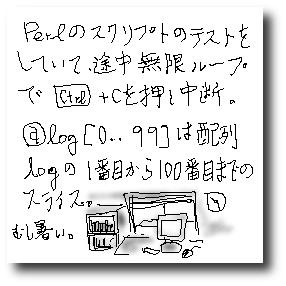 Perlのスクリプトのテストを
していて、途中無限ループ
で Ctrl +Cを押し中断。
@log[0..99]は配列
logの1番目から100番目までの
スライス。
むし暑い。